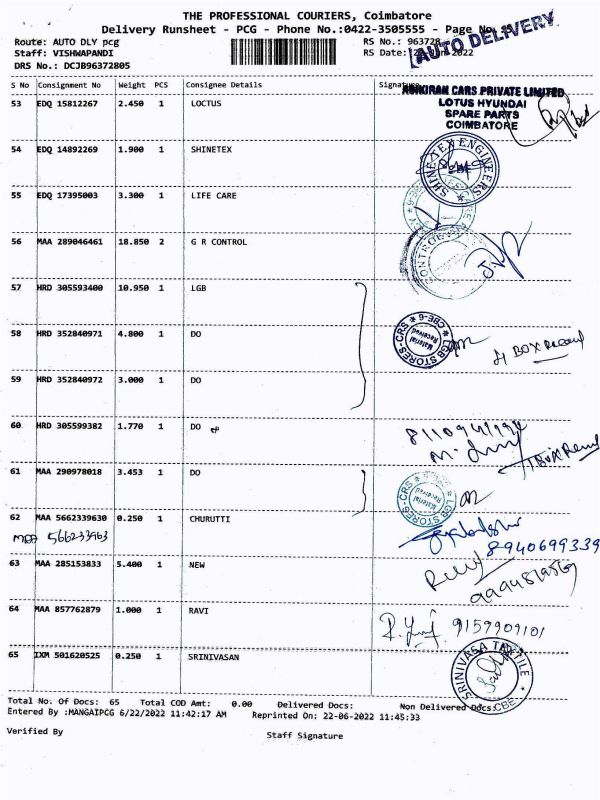 THE PROFESSIONAL COURIERS, Coimbatore
Delivery Runsheet - PCG - Phone No.:0422-3505555 - Page No.
AUTO DELIVERY
Route: AUTO DLY pcg
RS No.: 963728
Staff: VISHWAPANDI
RS Date: 2022
DRS No.: DCJB96372805
S No Consignment No Weight PCS Consignee Details Signature
53 EDQ 15812267 2.450 1 LOCTUS
CARS PRIVATE LIMITED
LOTUS HYUNDAI
SPARE PARTS
COIMBATORE
54 EDQ 14892269 1.900 1 SHINETEX
SHINETEX ENGINEERS
55 EDQ 17395003 3.300 1 LIFE CARE
56 MAA 289046461 18.850 2 G R CONTROL
57 HRD 305593400 10.950 1 LGB
58 HRD 352840971 4.800 1 DO
LGB STORES-CRS
Material
Received
CBE-6
BOX
59 HRD 352840972 3.000 1 DO
60 HRD 305599382 1.770 1 DO
61 MAA 290978018 3.453 1 DO
LGB STORES-CRS
Material
Received
62 MAA 5662339630 0.250 1 CHURUTTI
MAA 566233963
8940699339
63 MAA 285153833 5.400 1 NEW
64 MAA 857762879 1.000 1 RAVI
9159909101
65 IXM 501620525 0.250 1 SRINIVASAN
SRINIVASA TEXTILE
CBE
Total No. Of Docs: 65 Total COD Amt: 0.00 Delivered Docs: Non Delivered Docs:
Entered By :MANGAIPCG 6/22/2022 11:42:17 AM Reprinted On: 22-06-2022 11:45:33
Verified By
Staff Signature